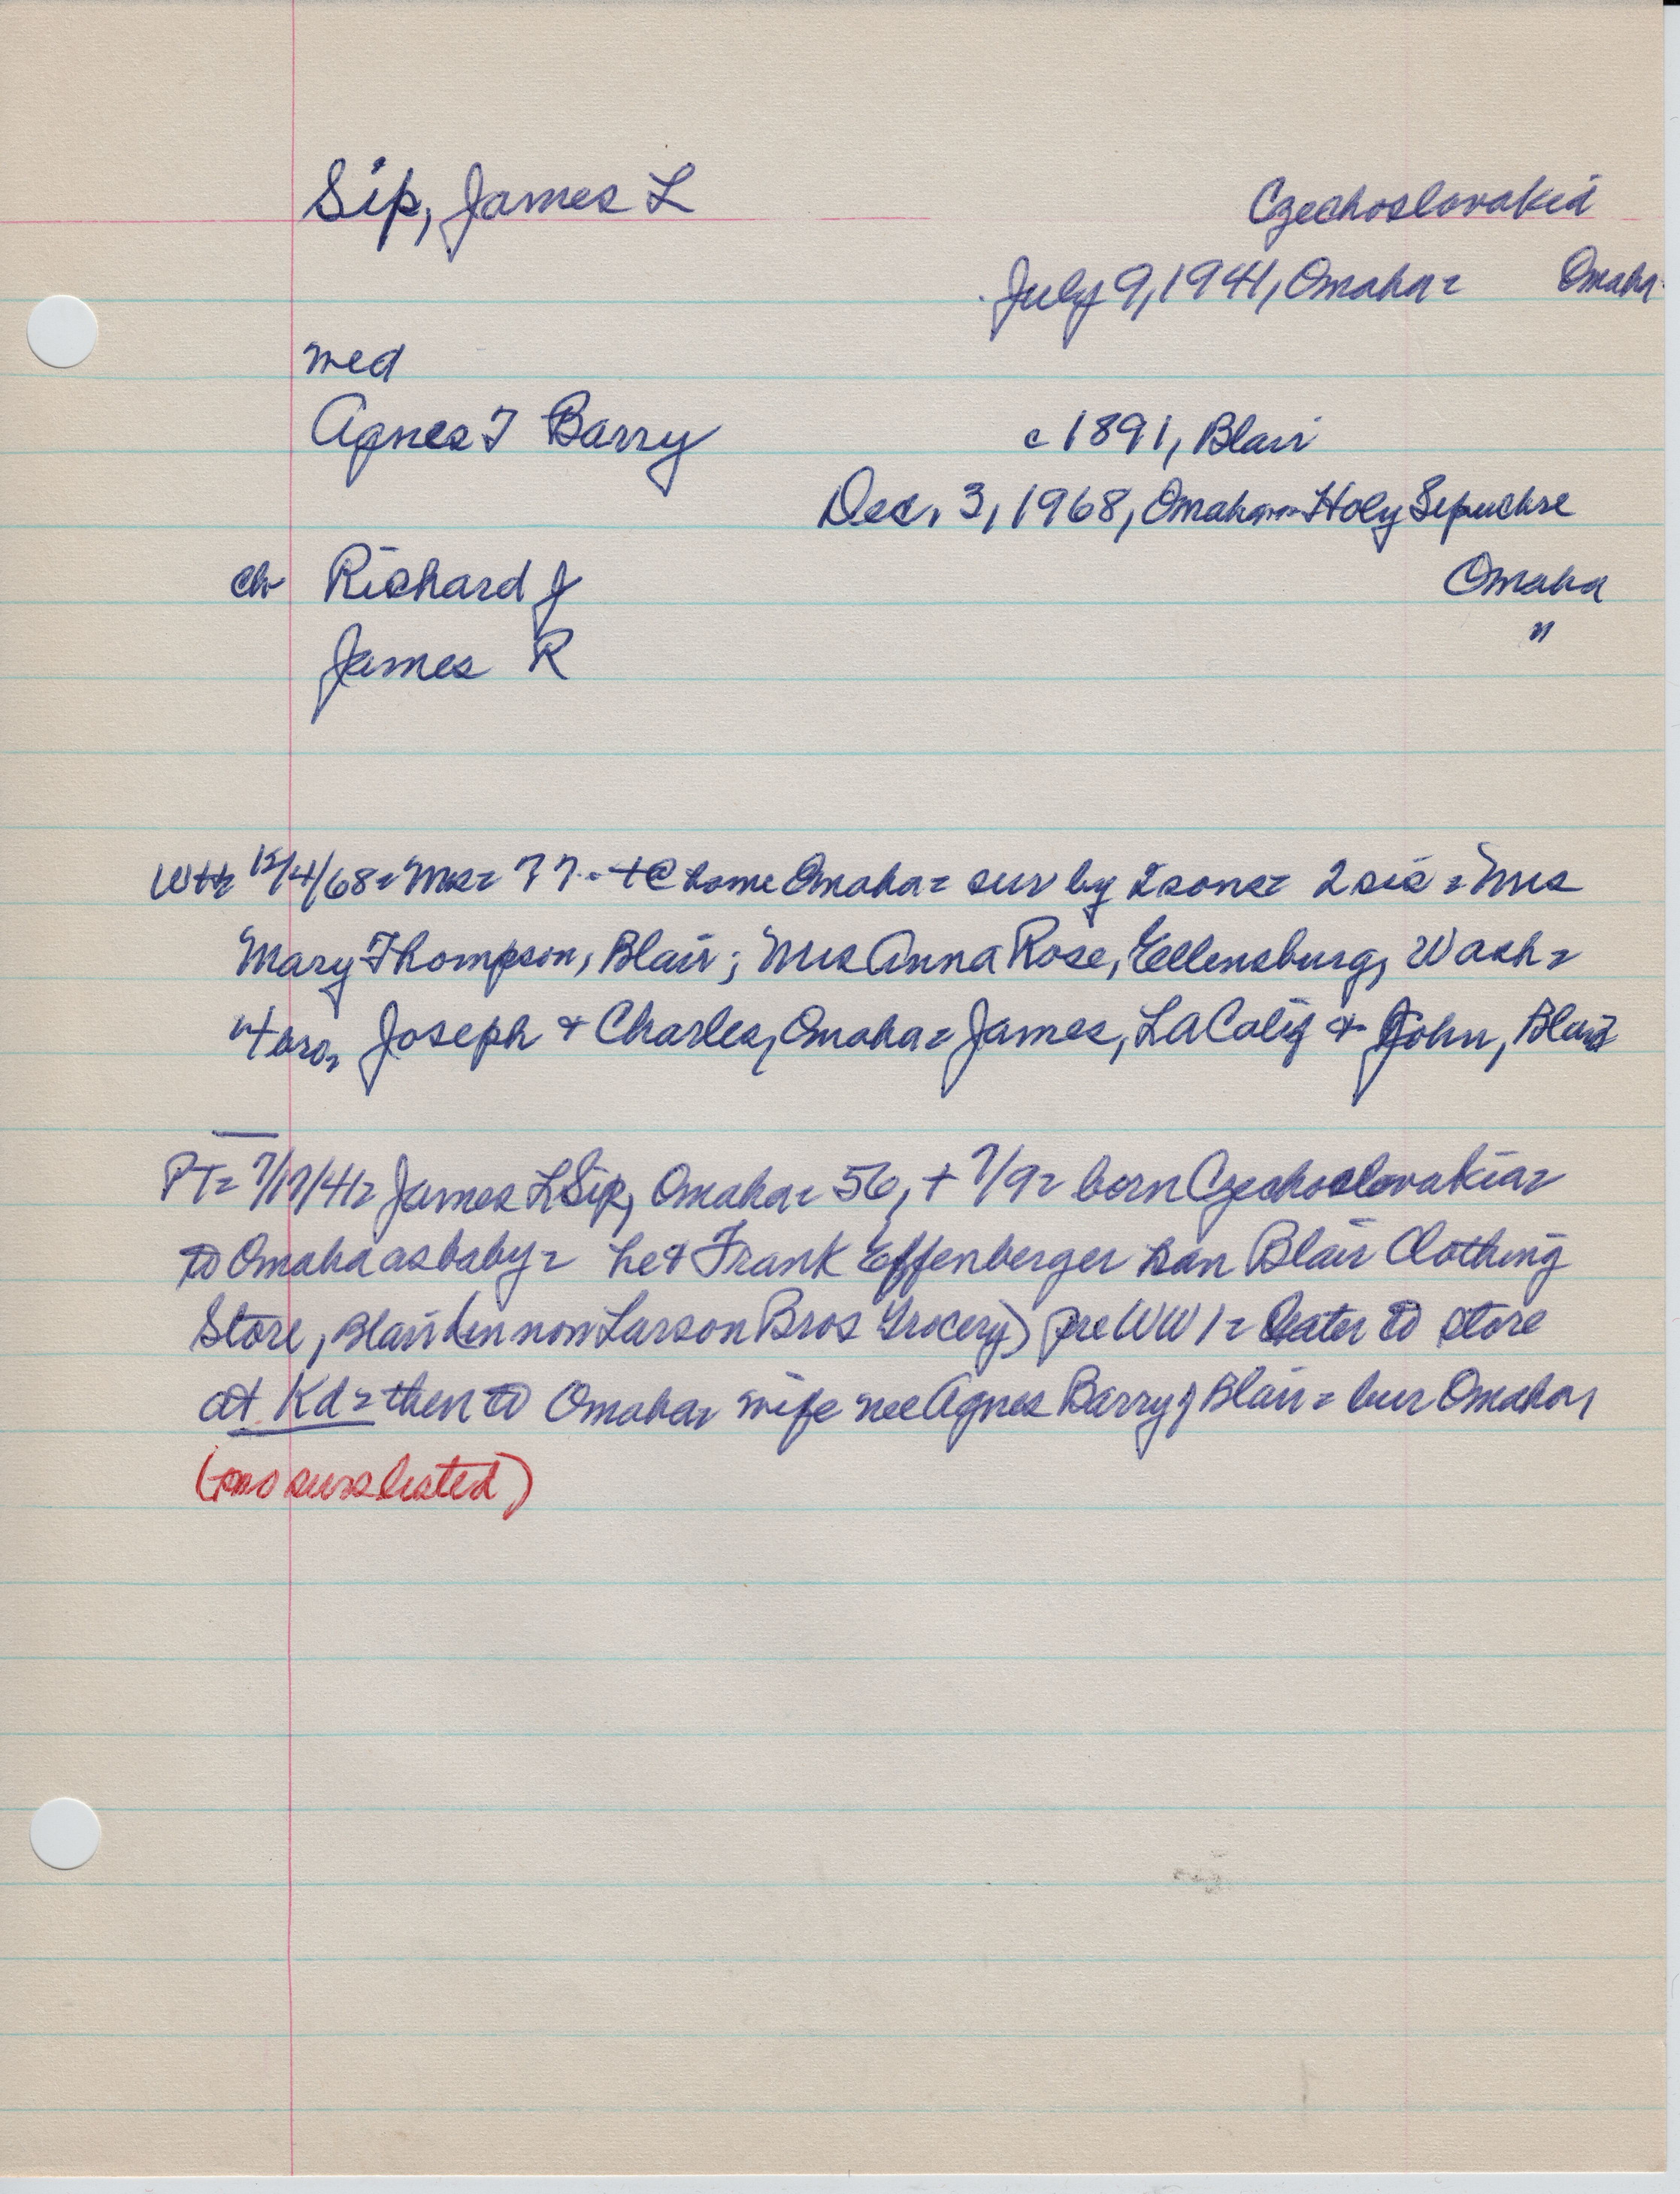 Sip, James L Czechoslovakia
July 9, 1941, Omaha = Omaha
med
Agnes T Barry c 1891, Blair
Dec. 3, 1968, Omaha = Holy Sepuchre
ch Richard J Omaha
James R "
12/4/68 = Mrs = 77 - + @ home Omaha = sur by 2 sons = 2 sis = Mrs
Mary Thompson, Blair; Mrs Anna Rose, Ellensburg, Wash =
4 bro, Joseph & Charles, Omaha = James, LA Calif & John, Blair
PT = 7/17/41 = James L Sip, Omaha = 56, + 7/9 = born Czechoslovakia =
to Omaha as baby = he & Frank Effenberger ran Blair Clothing
Store, Blair (in now Larson Bros Grocery) pre WW 1 = Later to store
at Kd = then to Omaha = wife nee Agnes Barry of Blair = bur Omaha,
(no surs listed)